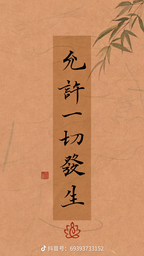 允許一切發生
抖音号：69393733152